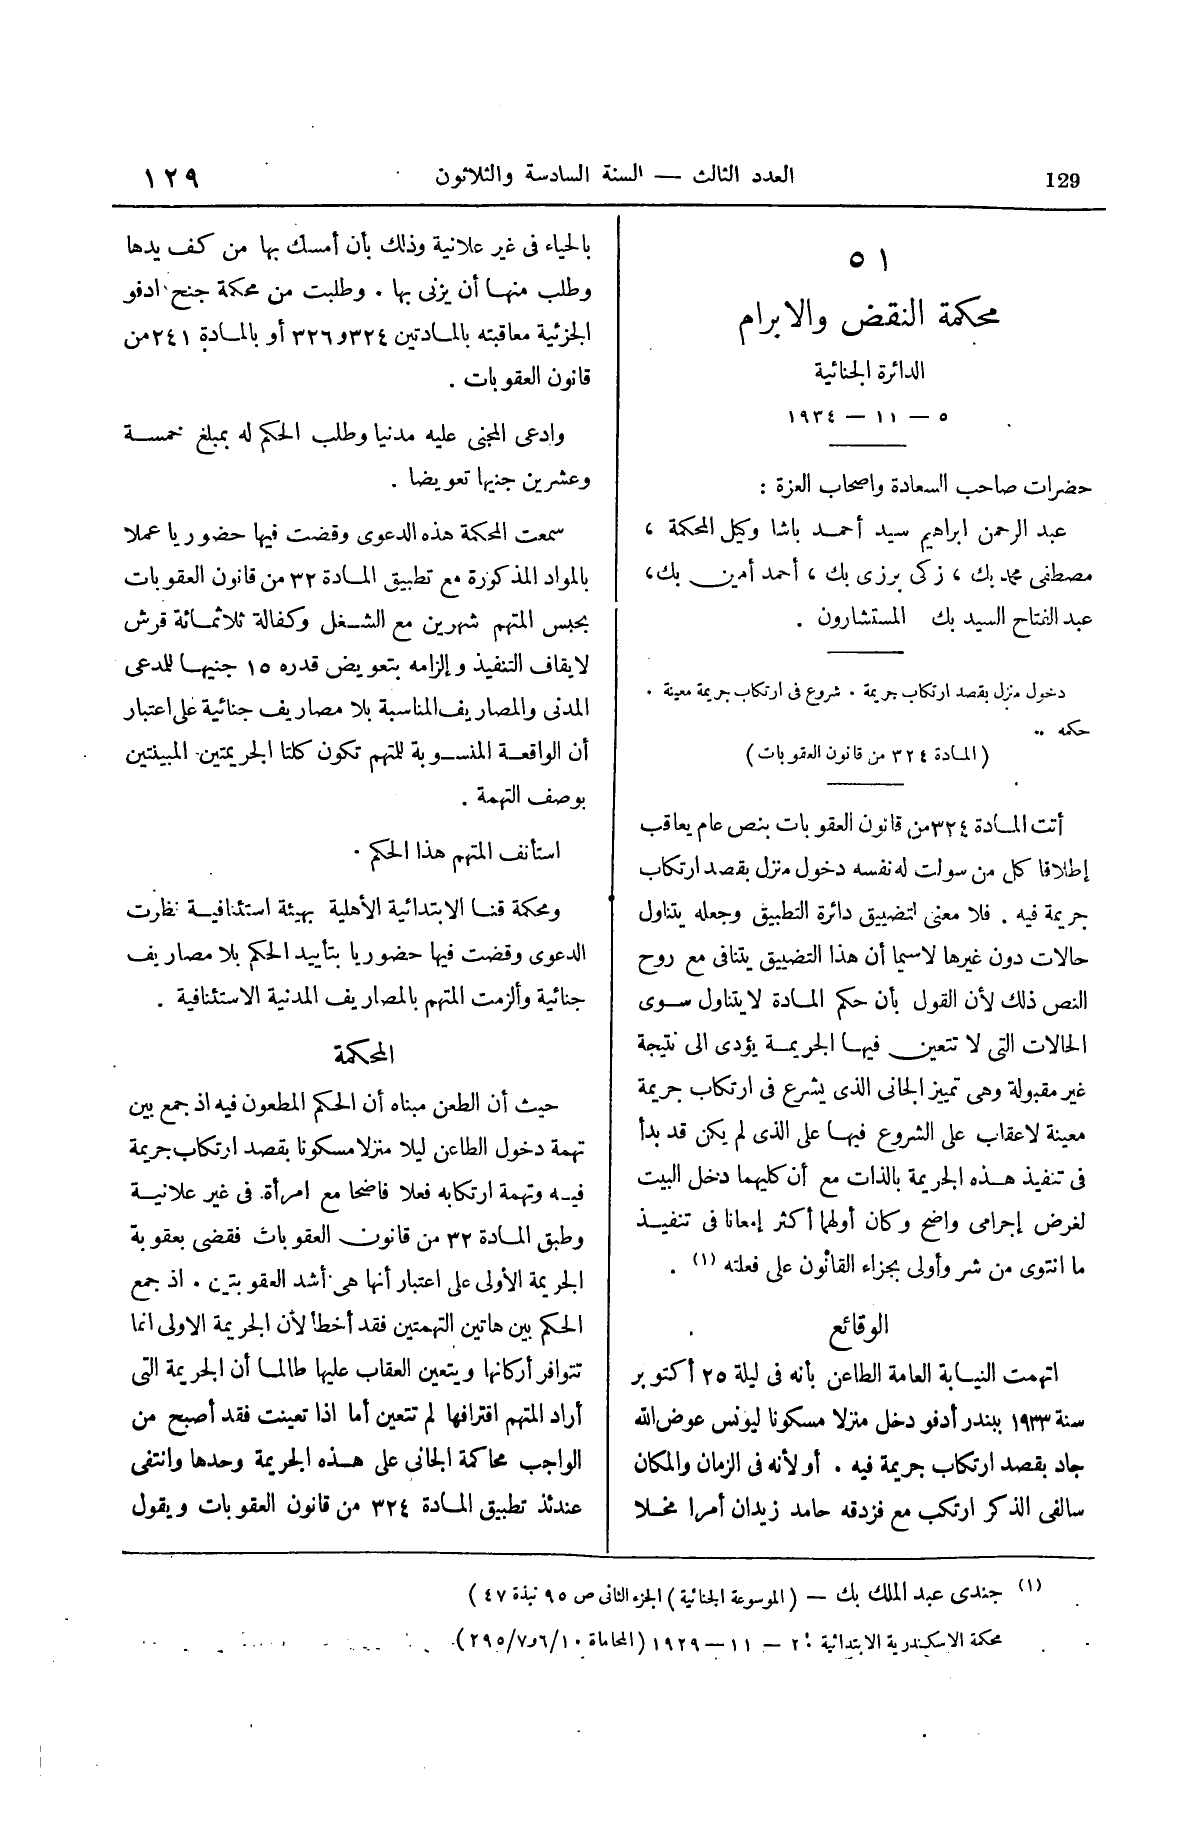 129
العدد الثالث — السنة السادسة والثلاثون
١٢٩
٥١
محكمة النقض والابرام
الدائرة الجنائية
٥ — ١١ — ١٩٣٤
حضرات صاحب السعادة واصحاب العزة :
عبد الرحمن ابراهيم سيد أحمد باشا وكيل المحكمة ،
مصطفى محمد بك ، زكى برزى بك ، أحمد أمين بك ،
عبد الفتاح السيد بك المستشارون .
دخول منزل بقصد ارتكاب جريمة . شروع فى ارتكاب جريمة معينة .
حكمه ..
( المادة ٣٢٤ من قانون العقوبات )
أتت المادة ٣٢٤ من قانون العقوبات بنص عام يعاقب
إطلاقا كل من سولت له نفسه دخول منزل بقصد ارتكاب
جريمة فيه . فلا معنى لتضييق دائرة التطبيق وجعله يتناول
حالات دون غيرها لاسيما أن هذا التضييق يتنافى مع روح
النص ذلك لأن القول بأن حكم المادة لا يتناول سوى
الحالات التى لا تتعين فيها الجريمة يؤدى الى نتيجة
غير مقبولة وهى تمييز الجانى الذى يشرع فى ارتكاب جريمة
معينة لاعقاب على الشروع فيها على الذى لم يكن قد بدأ
فى تنفيذ هذه الجريمة بالذات مع أن كليهما دخل البيت
لغرض إجرامى واضح وكان أولهما أكثر إمعانا فى تنفيذ
ما انتوى من شر وأولى بجزاء القانون على فعلته (١) .
الوقائع
اتهمت النيابة العامة الطاعن بأنه فى ليلة ٢٥ أكتوبر
سنة ١٩٣٣ ببندر أدفو دخل منزلا مسكونا ليونس عوض الله
جاد بقصد ارتكاب جريمة فيه . أو لأنه فى الزمان والمكان
سالفى الذكر ارتكب مع فزدقه حامد زيدان أمرا مخلا
بالحياء فى غير علانية وذلك بأن أمسك بها من كف يدها
وطلب منها أن يزنى بها . وطلبت من محكمة جنح ادفو
الجزئية معاقبته بالمادتين ٣٢٤ و٣٢٦ أو بالمادة ٢٤١ من
قانون العقوبات .
وادعى المجنى عليه مدنيا وطلب الحكم له بمبلغ خمسة
وعشرين جنيها تعويضا .
سمعت المحكمة هذه الدعوى وقضت فيها حضوريا عملا
بالمواد المذكورة مع تطبيق المادة ٣٢ من قانون العقوبات
بحبس المتهم شهرين مع الشغل وكفالة ثلاثمائة قرش
لايقاف التنفيذ وإلزامه بتعويض قدره ١٥ جنيها للمدعى
المدنى والمصاريف المناسبة بلا مصاريف جنائية على اعتبار
أن الواقعة المنسوبة للمتهم تكون كلتا الجريمتين المبينتين
بوصف التهمة .
استأنف المتهم هذا الحكم .
ومحكمة قنا الابتدائية الأهلية بهيئة استئنافية نظرت
الدعوى وقضت فيها حضوريا بتأييد الحكم بلا مصاريف
جنائية وألزمت المتهم بالمصاريف المدنية الاستئنافية .
المحكمة
حيث أن الطعن مبناه أن الحكم المطعون فيه اذ جمع بين
تهمة دخول الطاعن ليلا منزلا مسكونا بقصد ارتكاب جريمة
فيه وتهمة ارتكابه فعلا فاضحا مع امرأة فى غير علانية
وطبق المادة ٣٢ من قانون العقوبات فقضى بعقوبة
الجريمة الأولى على اعتبار أنها هى أشد العقوبتين . اذ جمع
الحكم بين هاتين التهمتين فقد أخطأ لأن الجريمة الاولى انما
تتوافر أركانها ويتعين العقاب عليها طالما أن الجريمة التى
أراد المتهم اقترافها لم تتعين أما اذا تعينت فقد أصبح من
الواجب محاكمة الجانى على هذه الجريمة وحدها وانتفى
عندئذ تطبيق المادة ٣٢٤ من قانون العقوبات ويقول
(١) جندى عبد الملك بك — ( الموسوعة الجنائية ) الجزء الثانى ص ٩٥ نبذة ٤٧ )
محكمة الاسكندرية الابتدائية : ٢ — ١١ — ١٩٢٩ ( المحاماة ١٠/٦و٢٩٥/٧ ) .